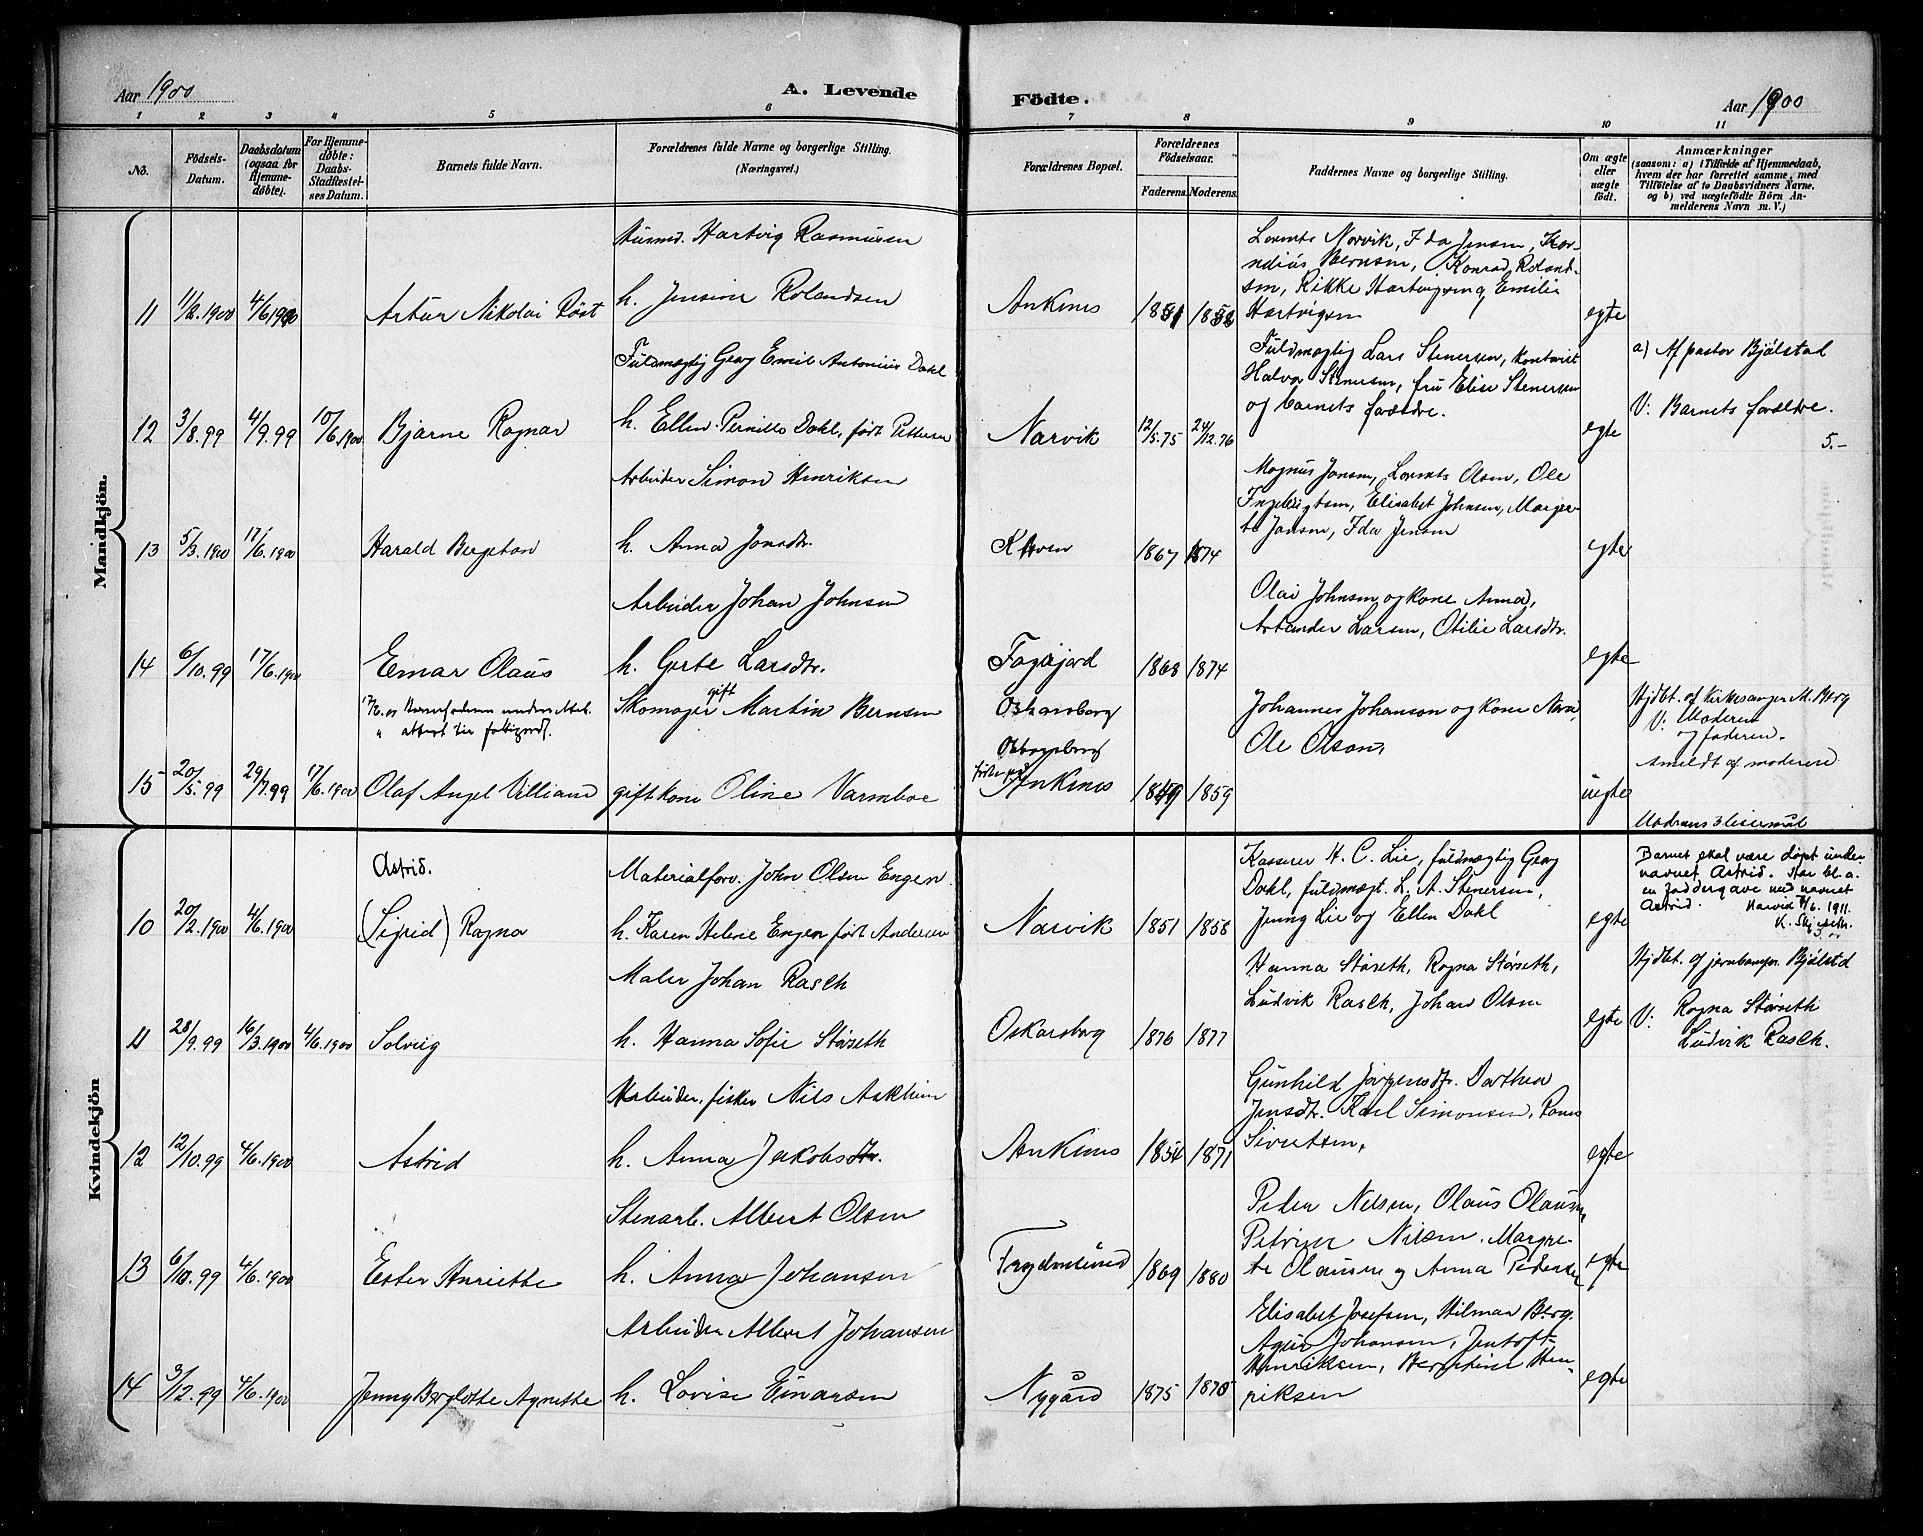 Aar 1900
A. Levende
Födte.
Aar 1900
1 2 3 4 5 6 7 8 9 10 11
No.
Födsels-Datum.
Daabsdatum (ogsaa for Hjemmedöbte).
For Hjemmedöbte: Daabs-Stadfæstelses Datum.
Barnets fulde Navn.
Forældrenes fulde Navne og borgerlige Stilling.
(Næringsvei.)
Forældrenes Bopæl.
Forældrenes Födselsaar.
Faderens. Moderens.
Faddernes Navne og borgerlige Stilling.
Om ægte eller uægte födt.
Anmærkninger
(saasom: a) i Tilfælde af Hjemmedaab, hvem der har forrettet samme, med Tilföielse af to Daabsvidners Navne, og b) ved uægtefödte Börn Anmelderens Navn m. V.)
Mandkjön.
Husmd. Hartvig Rasmusen
Lorents Norvik, Ida Jensen, Kor-
nelius Bernsen, Konrad Roland-
sen, Rikke Hartvigsen, Emilie
11 1/2.1900 4/6 1900 Artur Nikolai Röst h. Jensine Rolandsen Ankenes Hartvigsen egte
Fuldmægtig Georg Emil Antonius Dahl
Fuldmægtig Lars Stenersen, kontorist
Halvor Stenersen, fru Elise Stenersen
og barnets forældre.
a) Af pastor Bjölstad
V: Barnets forældre.
12 3/8.99 4/9.99 10/6.1900 Bjarne Ragnar h. Ellen Pernille Dahl, født Pettersen Narvik 12/5.75 24/12.76 egte
5.-
Arbeider Simon Henriksen
Magnus Jensen, Lorents Olsen, Ole
Ingebrigtsen, Elisabet Johnsen, Margre-
te Jansen, Ida Jensen
13 5/3.1900 17/6.1900 Harald Bergeton h. Anna Jonsdtr. 1867 1874 egte
Arbeider Johan Johnsen
Olai Johnsen og kone Anna,
Larsen, Otilie Larsdtr.
14 6/10.99 17/6.1900 Einar Olaus h. Gerte Larsdtr. Fagerjord 1868 1874 egte
17/6.
Skomager gift Martin Bernsen
Oskarsborg
Johannes Johanson og kone
Ole Olson,
Hjdbt. af Kirkesanger M. Berg
V: Moderen
og faderen.
Anmeldt af moderen
15 20/5.99 29/7.99 17/6.1900 Olaf Angel Villiand gift kone Oline Varmboe Ankenes 1859 uegte
Modrens 3 leiermaal
Kvindekjön
Astrid.
Materialforv. John Olsen Engen
Kasserer H. C. Lie, fuldmægtig Georg
Dahl, fuldmægt. L. A. Stenersen,
Jenny Lie og Ellen Dahl
Barnet skal være døpt under
navnet Astrid. Har bl.a.
en faddergave med navnet
Astrid. Narvik /6. 1911.
10 20/2.1900 4/6.1900 (Sigrid) Ragna h. Karen Helene Engen født Andersen Narvik 1851 1858 egte
Maler Johan Rasch
Hanna Störseth, Ragna Störseth,
Ludvik Rasch, Johan Olsen
Hjdbt. af Bjölstad
V: Ragna Störseth
Ludvik Rasch.
11 28/9.99 16/3.1900 4/6.1900 Solveig h. Hanna Sofie Störseth Oskarsborg 1876 1877 egte
Arbeider, fisker Nils Askheim
Gunhild Jörgensdtr. Dorthea
Jensdtr. Karl Simonsen,
Sivertsen,
12 12/10.99 4/6.1900 Astrid h. Anna Jakobsdtr. Ankenes 1854 1871 egte
Stenarb. Albert Olsen
Peder Nilsen, Olaus Olausen,
Petrine Nilsen. Margre-
te Olausen og Anna Pedersen
13 6/10.99 4/6.1900 Ester Henriette h. Anna Johansen Frydenlund 1869 1880 egte
Arbeider Albert Johansen
Elisabet Josefsen, Hilmar Berg.
Johansen, Jentoft
Henriksen, Bergitine Hen-
riksen
14 3/12.99 4/6.1900 Jenny Bergljotte Agnette h. Lovise Einarsen Nygård 1875 1875 egte